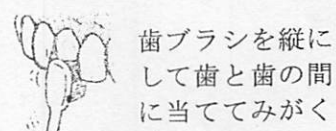 歯ブラシを縦に
して歯と歯の間
に当ててみがく